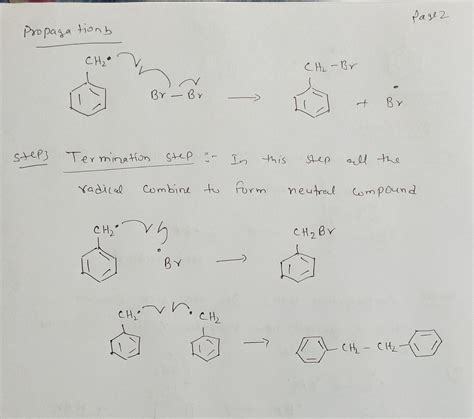 Page 2
Propagation b
CH₂•
CH₂-Br
Br-Br → + Br•
Step 3 Termination step :- In this step all the
radical combine to form neutral compound
CH₂• •Br → CH₂Br
CH₂• •CH₂ → CH₂-CH₂